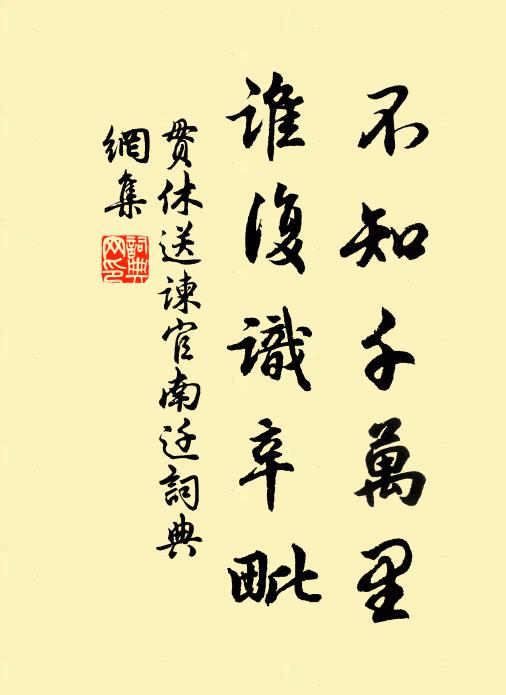 不知千萬里
誰復識辛毗
貫休送諫官南迁詞典
網集
詞典網印